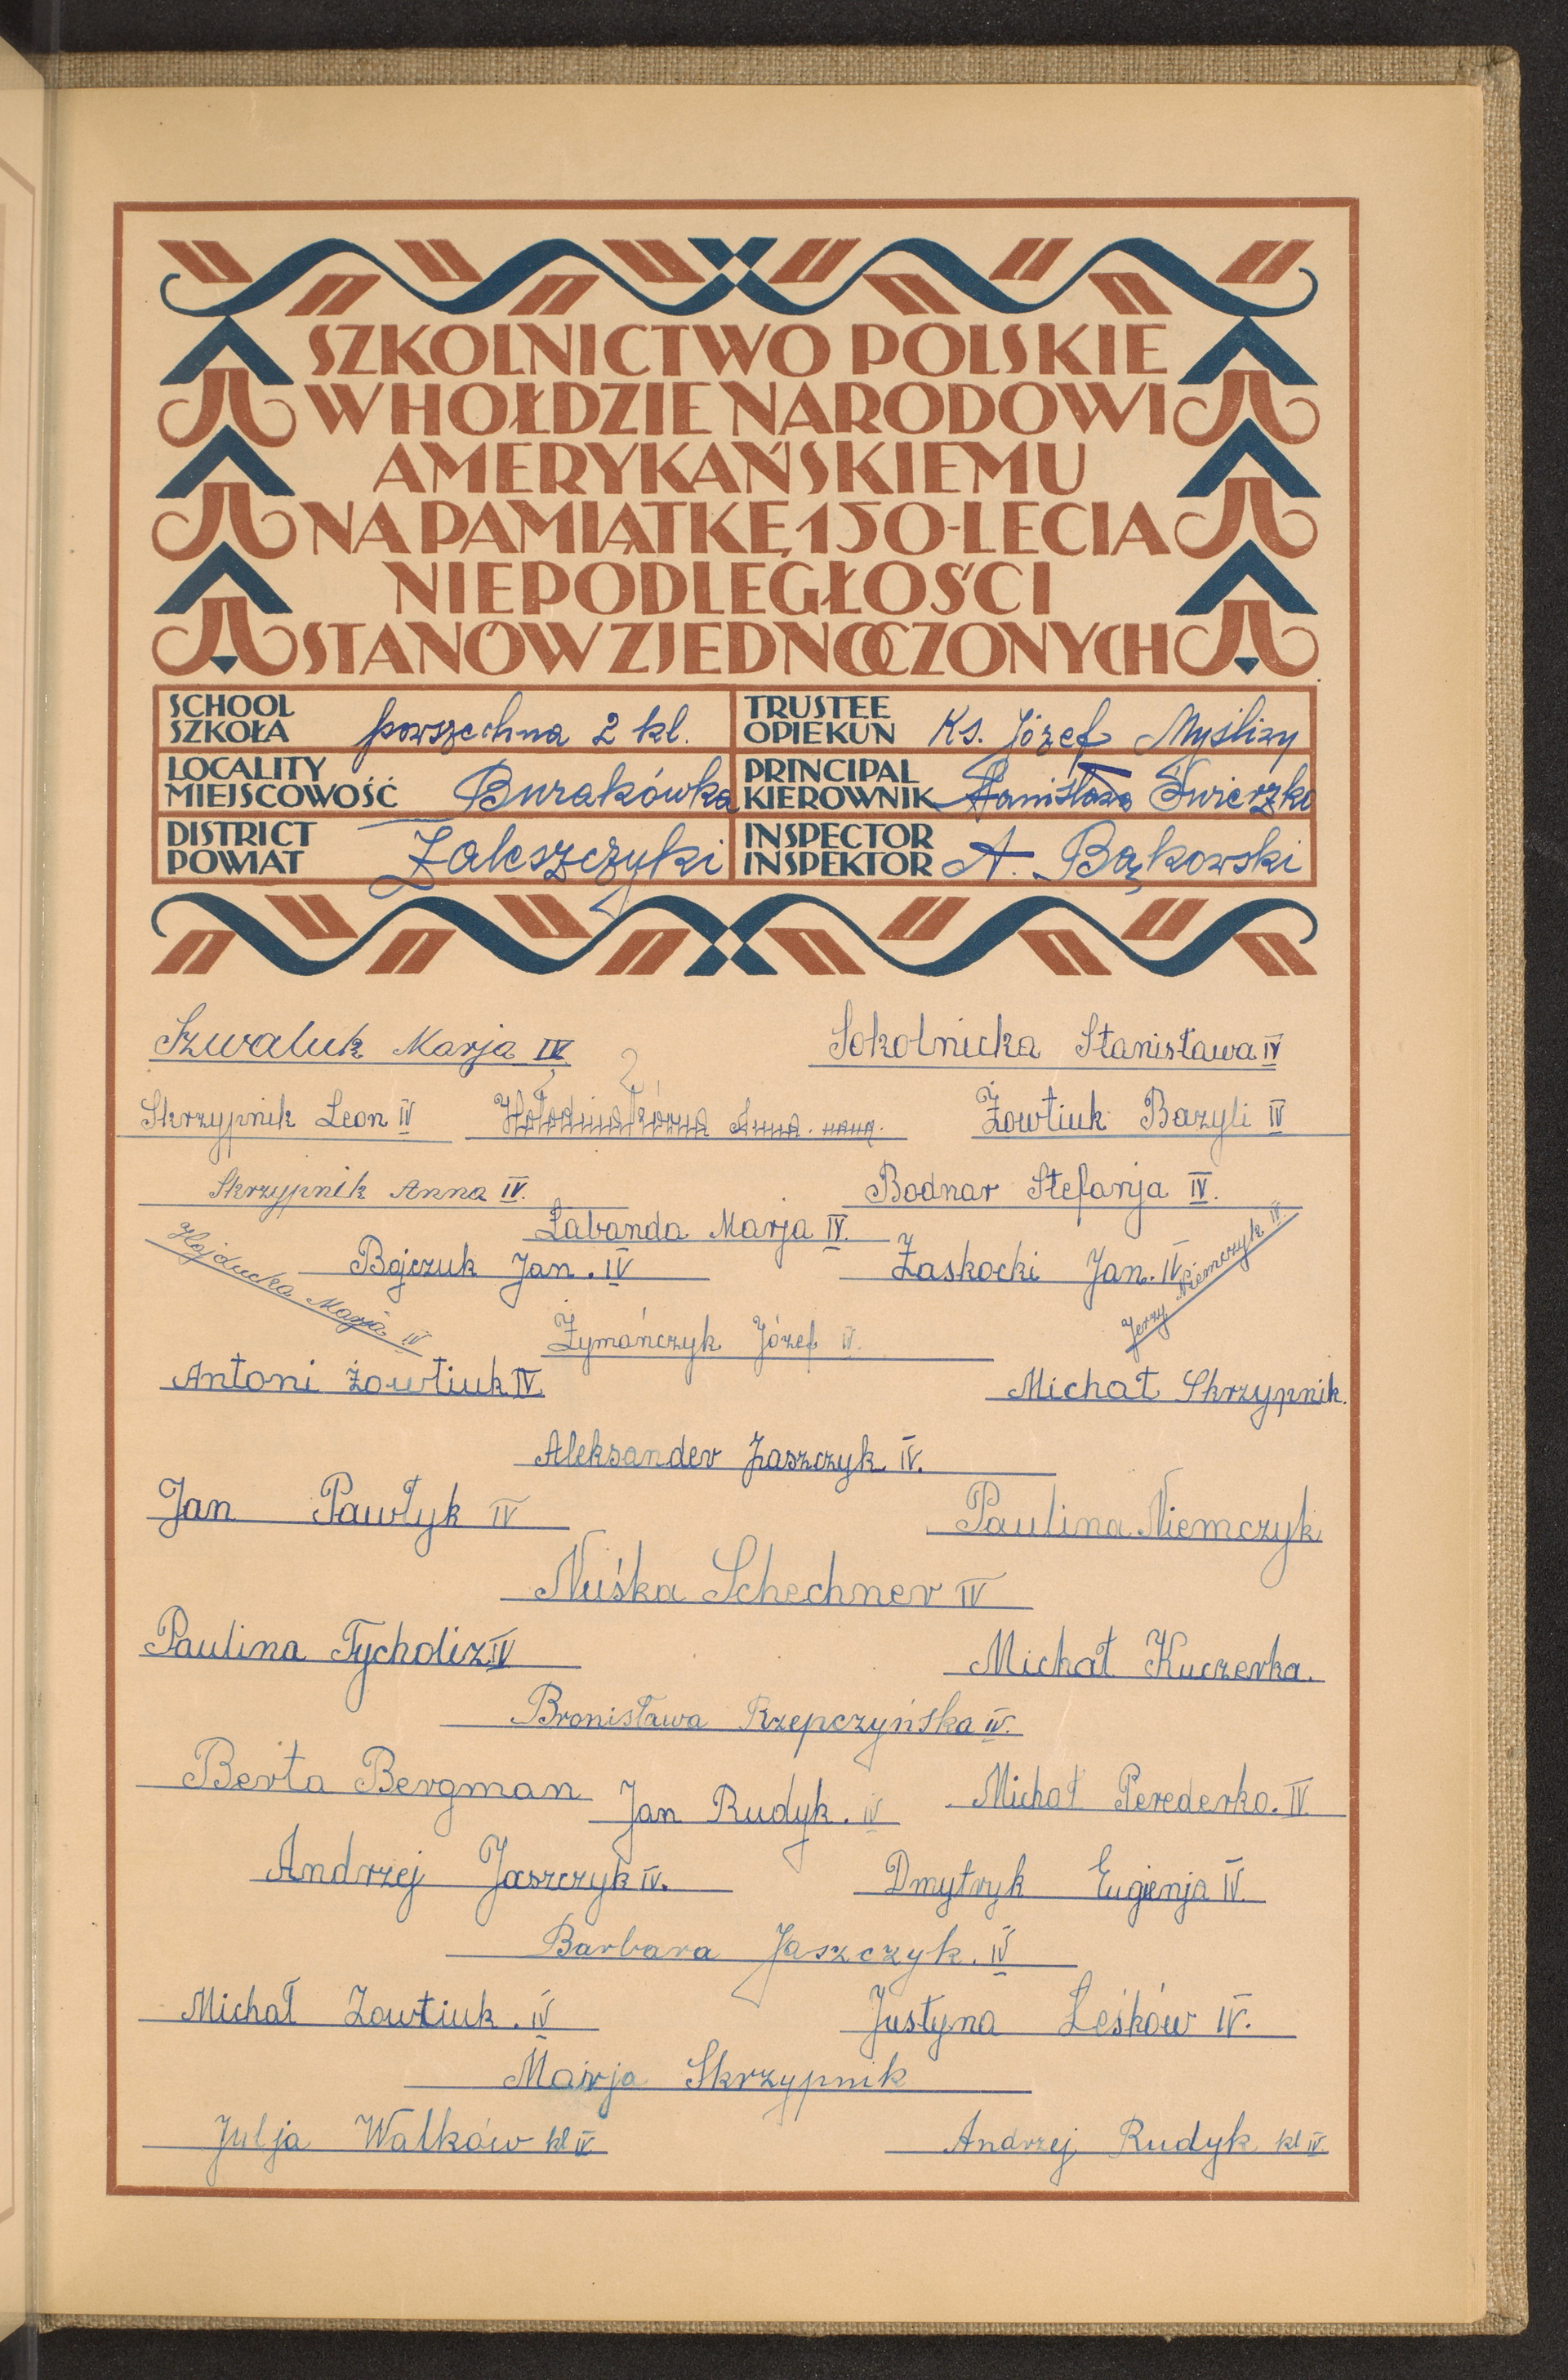 SZKOLNICTWO POLSKIE
W HOŁDZIE NARODOWI
AMERYKAŃSKIEMU
NA PAMIĄTKĘ 150-LECIA
NIEPODLEGŁOŚCI
STANÓW ZJEDNOCZONYCH
SCHOOL
SZKOŁA powszechna 2 kl.
TRUSTEE
OPIEKUN Ks. Józef Myśliwy
LOCALITY
MIEJSCOWOŚĆ Burakówka
PRINCIPAL
KIEROWNIK Stanisława Świerzko
DISTRICT
POWIAT Zaleszczyki
INSPECTOR
INSPEKTOR A. Bąkowski
Szwaluk Marja IV
Sokolnicka Stanisława IV
Skrzypnik Leon IV
Anna
Żowtiuk Bazyli IV
Skrzypnik Anna IV.
Bodnar Stefanja IV.
Łabanda Marja IV.
Hajducka Marja IV
Bojczuk Jan. IV
Zaskocki Jan. IV
Jerzy Niemczyk IV.
Zymańczyk Józef IV.
Antoni Żowtiuk IV
Michał Skrzypnik.
Aleksander Jaszczyk IV.
Jan Pawłyk IV
Paulina Niemczyk
Nuśka Schechner IV
Paulina Tycholiz IV
Michał Kuczerka.
Bronisława Rzepczyńska IV.
Berta Bergman
Jan Rudyk. IV
Michał Perederko. IV
Andrzej Jaszczyk IV.
Dmytryk Eugienja IV.
Barbara Jaszczyk. IV
Michał Zowtiuk. IV
Justyna Leśków IV.
Marja Skrzypnik
Julja Walków kl IV
Andrzej Rudyk kl IV.